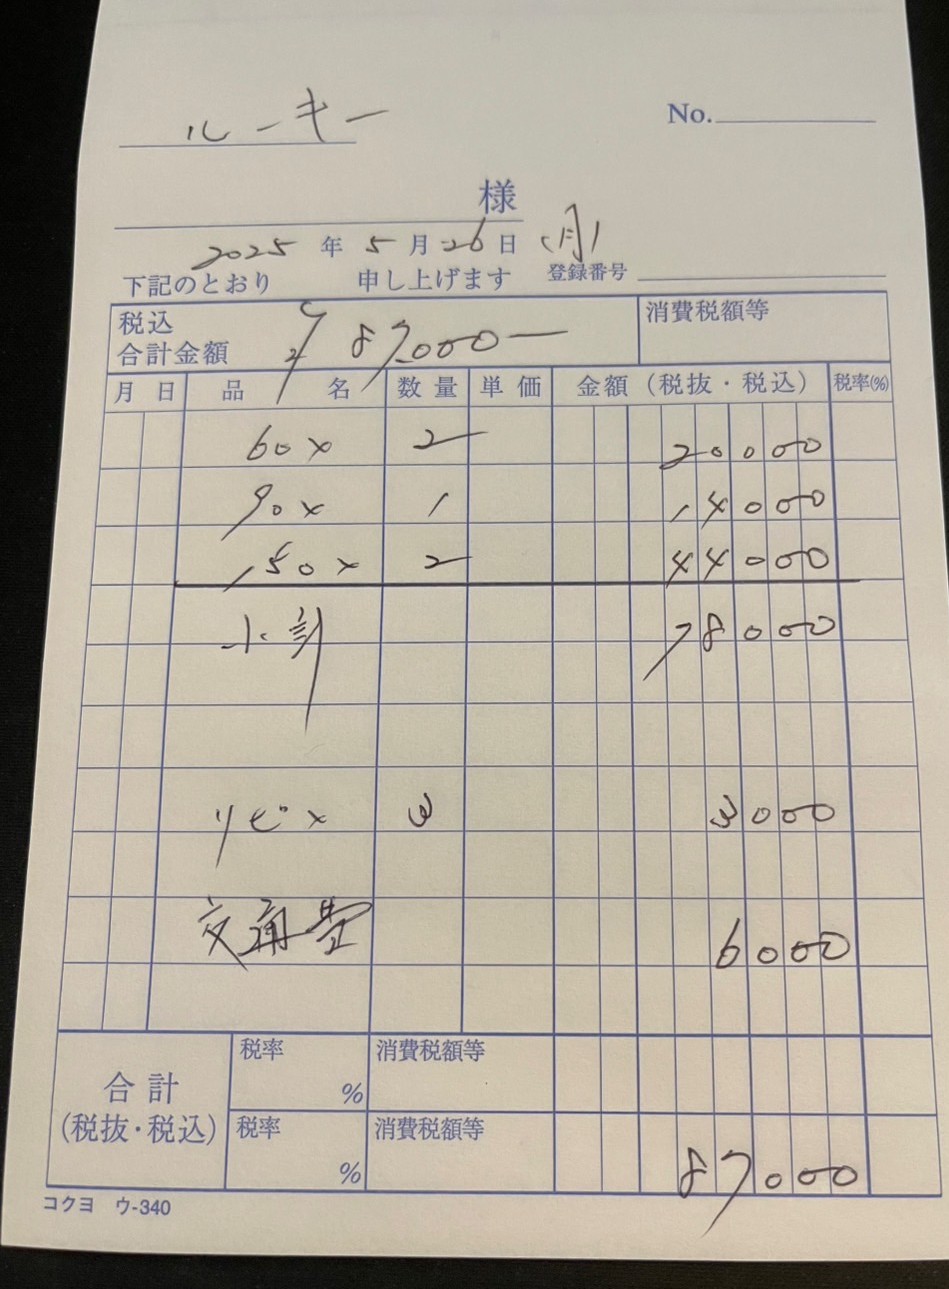 ルーキー
No.
様
2025 年 5 月 26 日 (月)
下記のとおり 申し上げます 登録番号
税込 合計金額 ¥ 87.000 ー 消費税額等
月 日 品 名 数量 単価 金額(税抜・税込) 税率(%)
60× 2 20000
90× 1 14000
150× 2 44000
小計 78000
リピ× 3 3000
交通費 6000
合計 (税抜・税込) 税率 % 消費税額等
税率 % 消費税額等 87000
コクヨ ウ-340